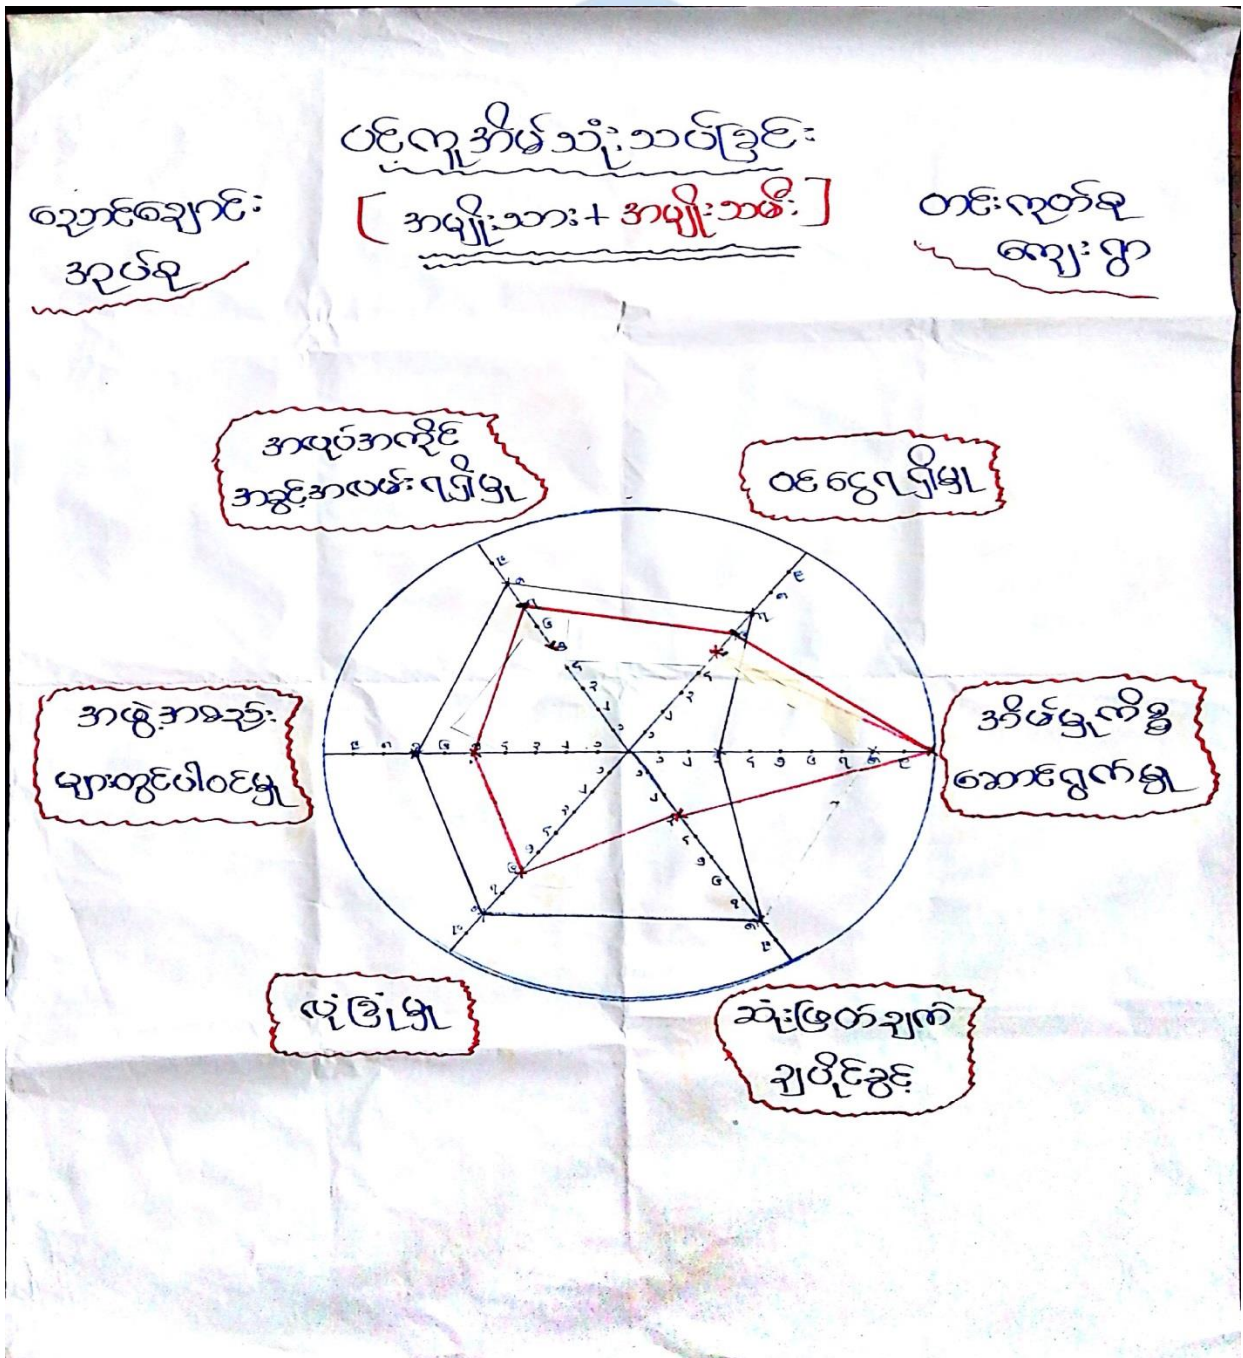 ပင့်ကူအိမ်သုံးသပ်ခြင်း
[ အမျိုးသား + အမျိုးသမီး ]
ညောင်ချောင်း
အုပ်စု
တင်းကုတ်စု
ကျေးရွာ
အလုပ်အကိုင်
အခွင့်အလမ်းရရှိမှု
ဝင်ငွေရရှိမှု
အဖွဲ့အစည်း
များတွင်ပါဝင်မှု
အိမ်မှုကိစ္စ
ဆောင်ရွက်မှု
လုံခြုံမှု
ဆုံးဖြတ်ချက်
ချပိုင်ခွင့်